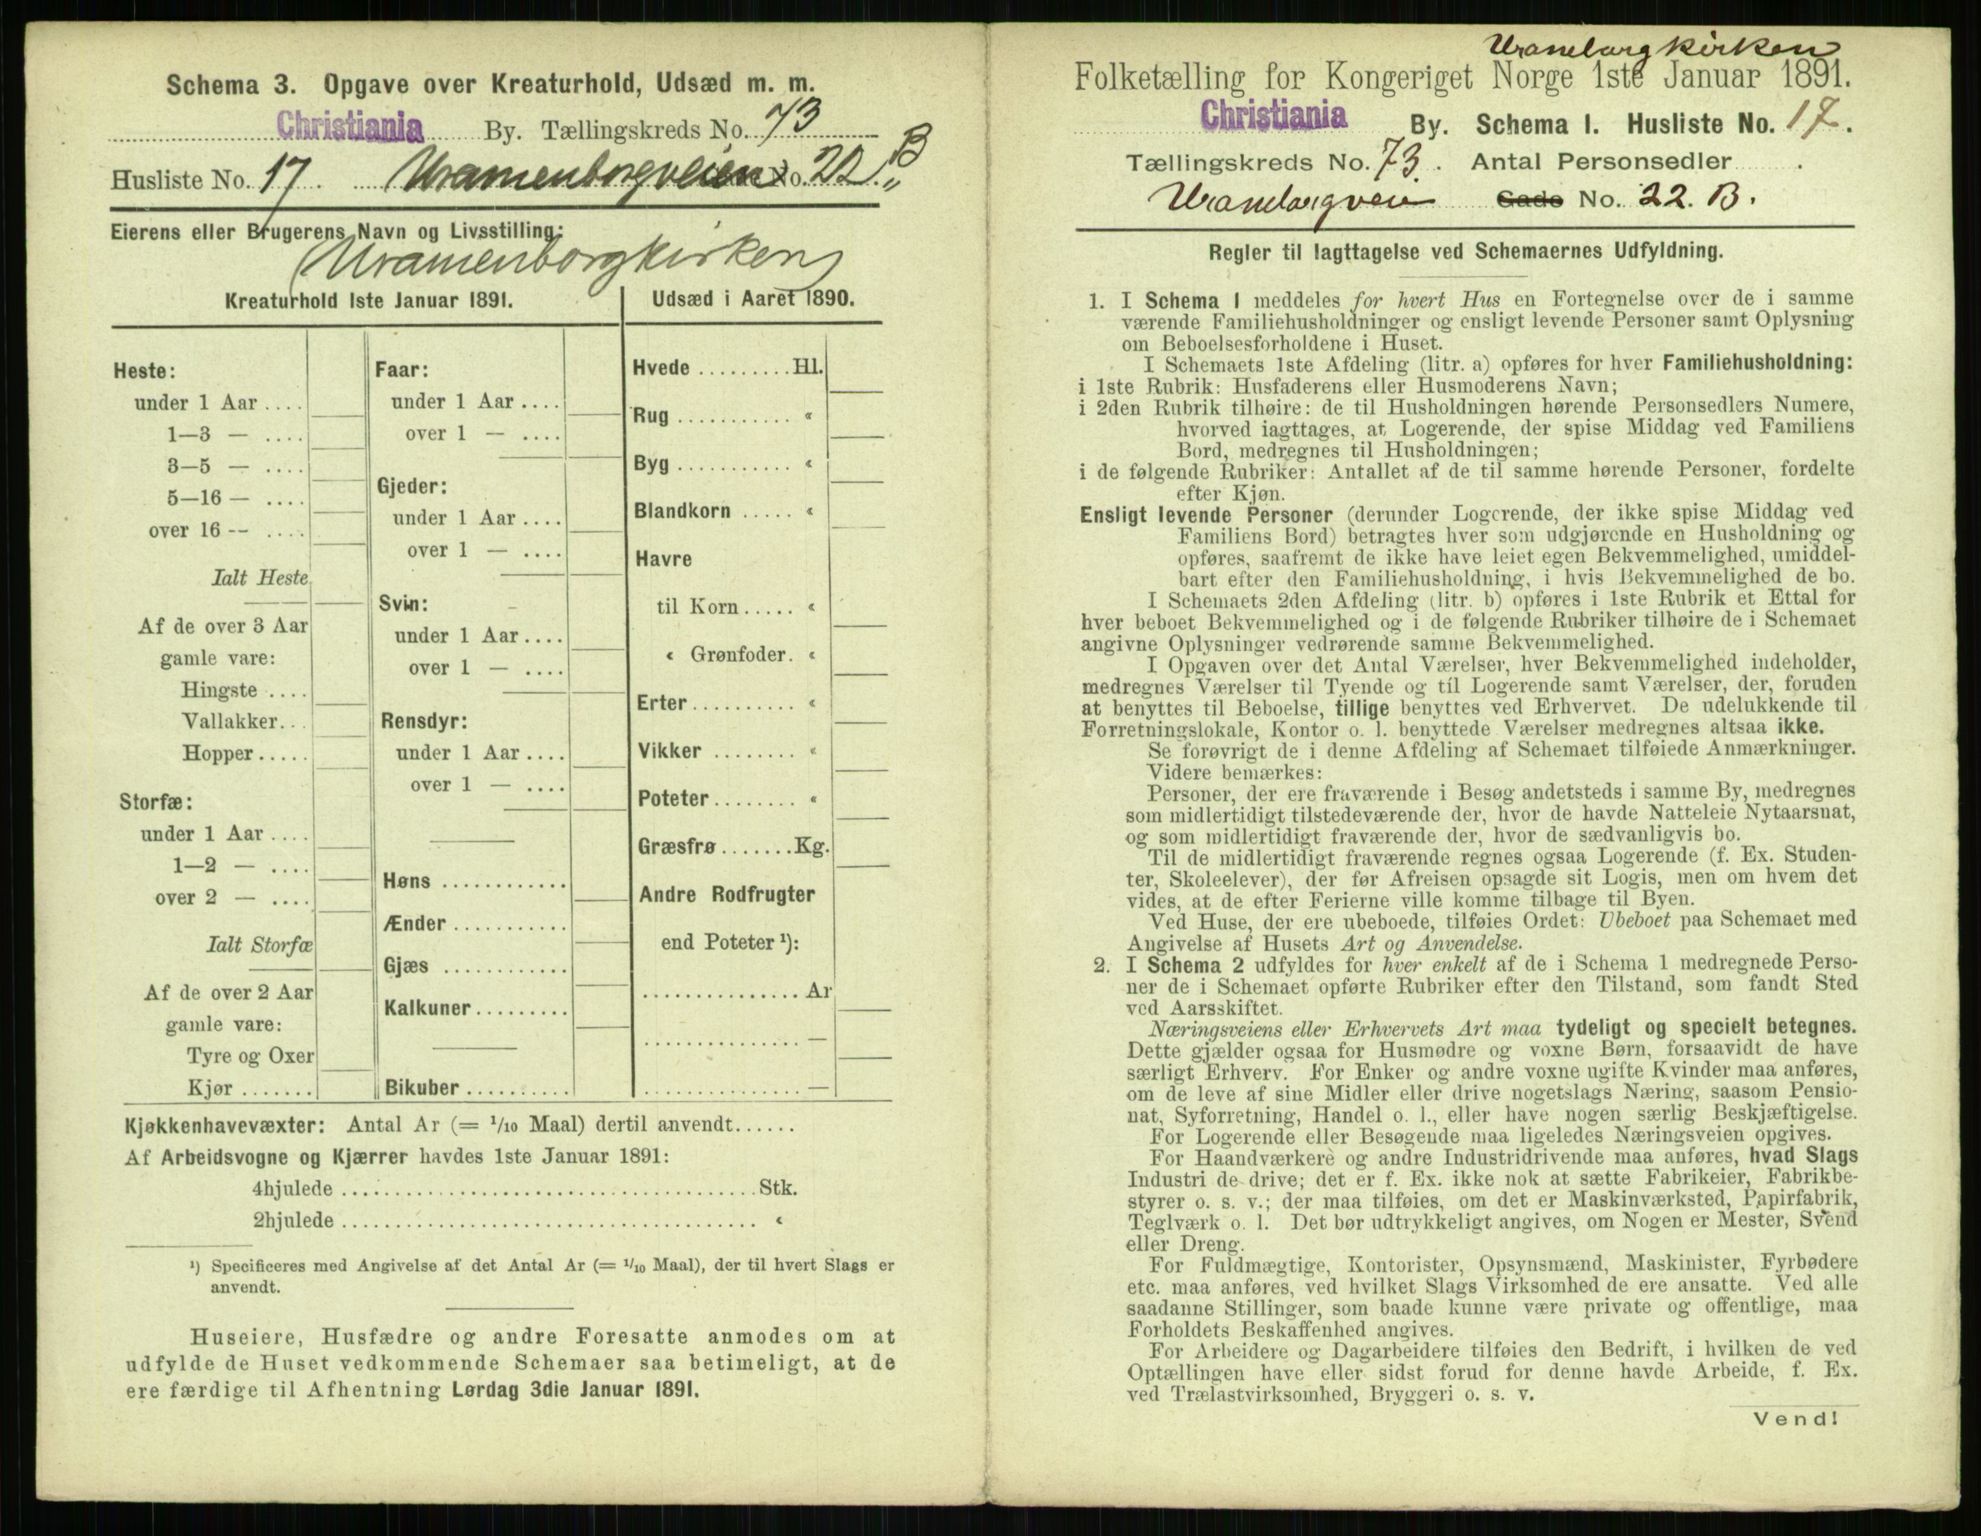 Schema 3. Opgave over Kreaturhold, Udsæd m. m.
Christiania By. Tællingskreds No. 73
Husliste No. 17. Uranienborgveien No. 22 B„
Eierens eller Brugerens Navn og Livsstilling:
Uranienborgkirken
Kreaturhold 1ste Januar 1891.
Udsæd i Aaret 1890.
Heste:
under 1 Aar ....
1—3 — ....
3—5 — ....
5—16 — ....
over 16 -- ....
Ialt Heste
Af de over 3 Aar
gamle vare:
Hingste ....
Vallakker...
Hopper.....
Storfæ:
under 1 Aar ....
1—2 — ....
over 2 — ....
Ialt Storfæ
Af de over 2 Aar
gamle vare:
Tyre og Oxer
Kjør .......
Faar:
under 1 Aar ....
over 1 — ....
Gjeder:
under 1 Aar ....
over 1 — ....
Svin:
under 1 Aar ....
over 1 — ....
Rensdyr:
under 1 Aar ....
over 1 — ....
Høns ............
Ænder ...........
Gjæs ............
Kalkuner.........
Bikuber ..........
Hvede .........Hl.
Rug ........... «
Byg ........... «
Blandkorn ..... «
Havre
til Korn ..... «
« Grønfoder. «
Erter.......... «
Vikker ........ «
Poteter ........ «
Græsfrø .......Kg.
Andre Rodfrugter
end Poteter ¹):
............... Ar
............... —
............... —
Kjøkkenhavevæxter: Antal Ar (= 1/10 Maal) dertil anvendt......
Af Arbeidsvogne og Kjærrer havdes 1ste Januar 1891:
4hjulede ........................................ Stk.
2hjulede ........................................ «
¹) Specificeres med Angivelse af det Antal Ar (= 1/10 Maal), der til hvert Slags er
anvendt.
Huseiere, Husfædre og andre Foresatte anmodes om at
udfylde de Huset vedkommende Schemaer saa betimeligt, at de
ere færdige til Afhentning Lørdag 3die Januar 1891.
Uranieborgkirken
Folketælling for Kongeriget Norge 1ste Januar 1891.
Christiania By. Schema 1. Husliste No. 17.
Tællingskreds No. 73. Antal Personsedler .
Uranieborgveien Gade No. 22. B.
Regler til Iagttagelse ved Schemaernes Udfyldning.
1. I Schema 1 meddeles for hvert Hus en Fortegnelse over de i samme
værende Familiehusholdninger og ensligt levende Personer samt Oplysning
om Beboelsesforholdene i Huset.
I Schemaets 1ste Afdeling (litr. a) opføres for hver Familiehusholdning:
i 1ste Rubrik: Husfaderens eller Husmoderens Navn;
i 2den Rubrik tilhøire: de til Husholdningen hørende Personsedlers Numere,
hvorved iagttages, at Logerende, der spise Middag ved Familiens
Bord, medregnes til Husholdningen;
i de følgende Rubriker: Antallet af de til samme hørende Personer, fordelte
efter Kjøn.
Ensligt levende Personer (derunder Logerende, der ikke spise Middag ved
Familiens Bord) betragtes hver som udgjørende en Husholdning og
opføres, saafremt de ikke have leiet egen Bekvemmelighed, umiddel-
bart efter den Familiehusholdning, i hvis Bekvemmelighed de bo.
I Schemaets 2den Afdeling (litr. b) opføres i 1ste Rubrik et Ettal for
hver beboet Bekvemmelighed og i de følgende Rubriker tilhøire de i Schemaet
angivne Oplysninger vedrørende samme Bekvemmelighed.
I Opgaven over det Antal Værelser, hver Bekvemmelighed indeholder,
medregnes Værelser til Tyende og til Logerende samt Værelser, der, foruden
at benyttes til Beboelse, tillige benyttes ved Erhvervet. De udelukkende til
Forretningslokale, Kontor o. l. benyttede Værelser medregnes altsaa ikke.
Se forøvrigt de i denne Afdeling af Schemaet tilføiede Anmærkninger.
Videre bemærkes:
Personer, der ere fraværende i Besøg andetsteds i samme By, medregnes
som midlertidigt tilstedeværende der, hvor de havde Natteleie Nytaarsnat,
og som midlertidigt fraværende der, hvor de sædvanligvis bo.
Til de midlertidigt fraværende regnes ogsaa Logerende (f. Ex. Studen-
ter, Skoleelever), der før Afreisen opsagde sit Logis, men om hvem det
vides, at de efter Ferierne ville komme tilbage til Byen.
Ved Huse, der ere ubeboede, tilføies Ordet: Ubeboet paa Schemaet med
Angivelse af Husets Art og Anvendelse.
2. I Schema 2 udfyldes for hver enkelt af de i Schema 1 medregnede Perso-
ner de i Schemaet opførte Rubriker efter den Tilstand, som fandt Sted
ved Aarsskiftet.
Næringsveiens eller Erhvervets Art maa tydeligt og specielt betegnes.
Dette gjælder ogsaa for Husmødre og voxne Børn, forsaavidt de have
særligt Erhverv. For Enker og andre voxne ugifte Kvinder maa anføres,
om de leve af sine Midler eller drive nogetslags Næring, saasom Pensio-
nat, Syforretning, Handel o. l., eller have nogen særlig Beskjæftigelse.
For Logerende eller Besøgende maa ligeledes Næringsveien opgives.
For Haandværkere og andre Industridrivende maa anføres, hvad Slags
Industri de drive; det er f. Ex. ikke nok at sætte Fabrikeier, Fabrikbe-
styrer o. s. v.; der maa tilføies, om det er Maskinværksted, Papirfabrik,
Teglværk o. l. Det bør udtrykkeligt angives, om Nogen er Mester, Svend
eller Dreng.
For Fuldmægtige, Kontorister, Opsynsmænd, Maskinister, Fyrbødere
etc. maa anføres, ved hvilket Slags Virksomhed de ere ansatte. Ved alle
saadanne Stillinger, som baade kunne være private og offentlige, maa
Forholdets Beskaffenhed angives.
For Arbeidere og Dagarbeidere tilføies den Bedrift, i hvilken de ved
Optællingen have eller sidst forud for denne havde Arbeide, f. Ex.
ved Trælastvirksomhed, Bryggeri o. s. v.
Vend!